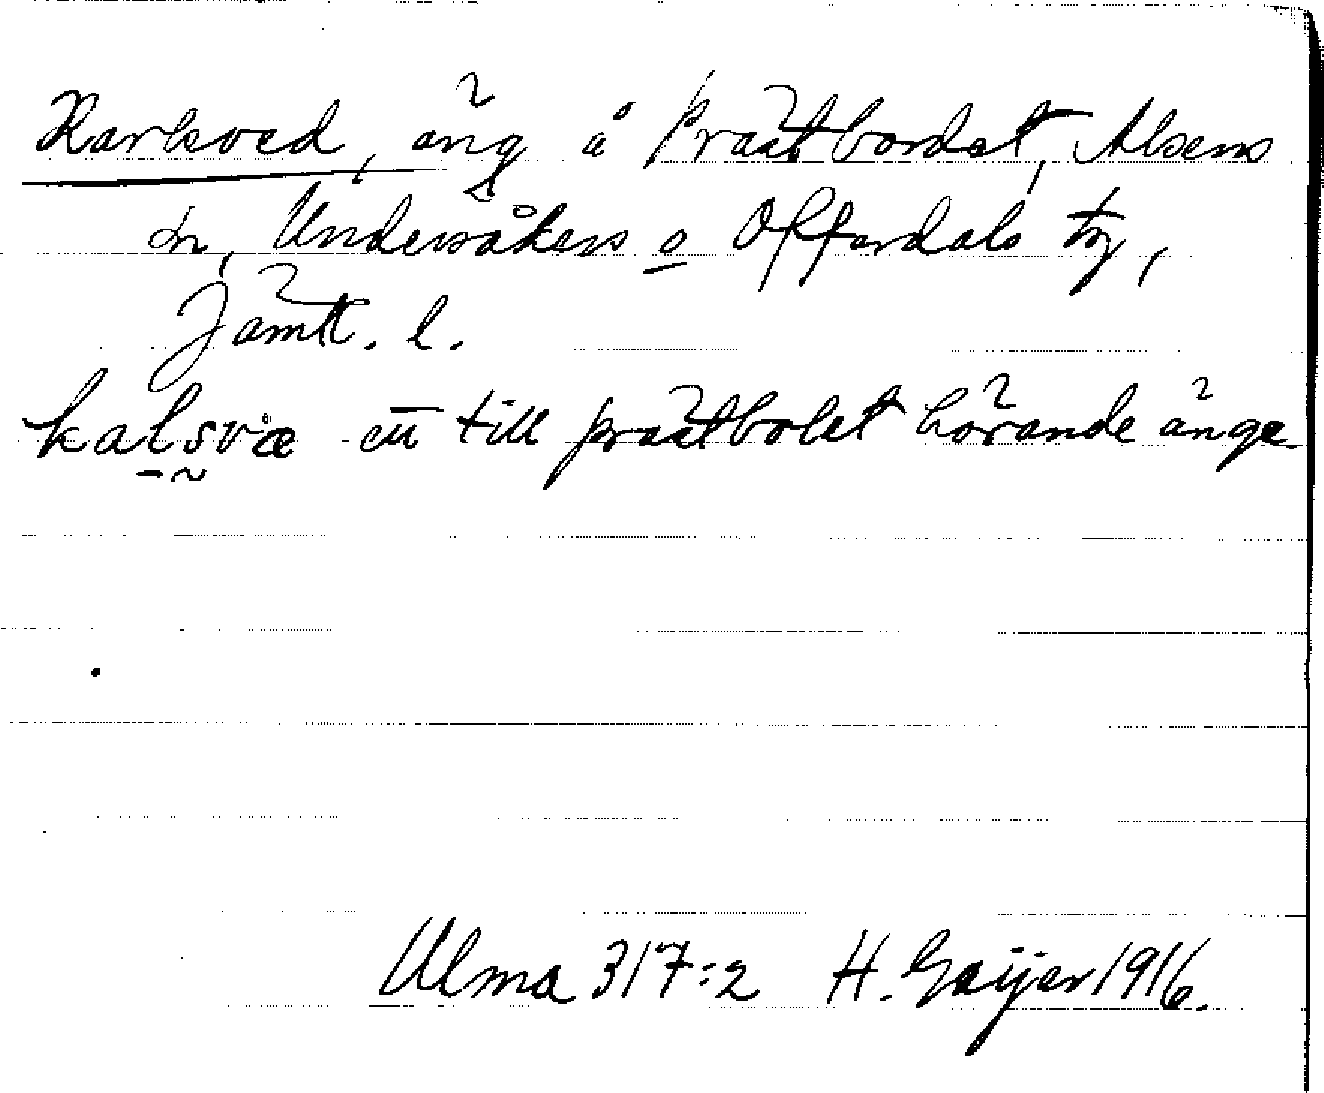 Karlsved, äng å Prästbordet, Alsens
sn, Undersåkers o Offerdals tg,
Jämtl. l.
kalsvæ ett till prästbolet hörande änge
Ulma 317:2 H. Geijer 1916.